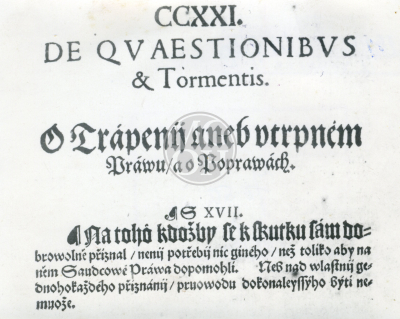 CCXXI.
DE QVAESTIONIBVS
& Tormentis.
O Trápenij aneb vtrpném
Práwu/a o Poprawách.
S XVII.
Na toho kdožby se k skutku sám do-
browolně přiznal / nenij potřebij nic giného / než toliko aby na
něm Saudcowé Práwa dopomohli. Neb nad wlastnij ge-
dnohokaždého přiznánij / pruowodu dokonaleyssýho býti ne-
muože.